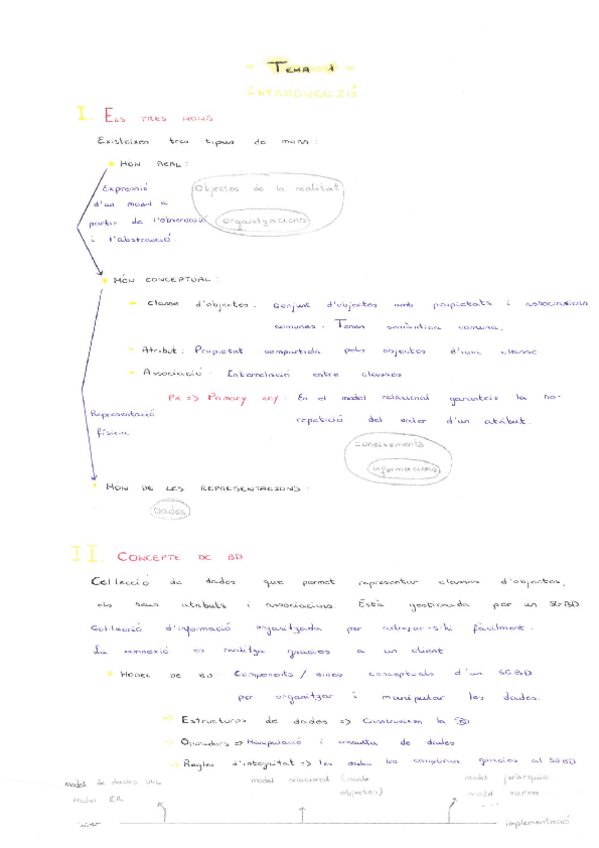 - TEMA 1 -
INTRODUCCIÓ
I. ELS TRES MONS
Existeixen tres tipus de mons:
MÓN REAL:
Expressió
Objectes de la realitat
d'un model a
partir de l'observació
organitzacions
i l'abstracció.
MÓN CONCEPTUAL:
Classe d'objectes: Conjunt d'objectes amb propietats i associacions
comunes. Tenen semàntica comuna.
Atribut: Propietat compartida pels objectes d'una classe
Associació: Interrelació entre classes
PK => Primary key: En el model relacional garanteix la no-
Representació
repetició del valor d'un atribut.
física.
Coneixements
informacions
MÓN DE LES REPRESENTACIONS:
Dades
II. CONCEPTE DE BD
Col·lecció de dades que permet representar classes d'objectes,
els seus atributs i associacions. Està gestionada per un SGBD
Col·lecció d'informació organitzada per accedir-s'hi fàcilment.
La connexió es realitza gràcies a un client
MODEL DE BD: Components / eines conceptuals d'un SGBD
per organitzar i manipular les dades.
Estructures de dades => Construeixen la BD
Operadors => Manipulació i consulta de dades
Regles d'integritat => Les dades les compleixen gràcies al SGBD
model de dades UML
model relacional
objectes)
model jeràrquic
Model ER
model xarxa
implementació